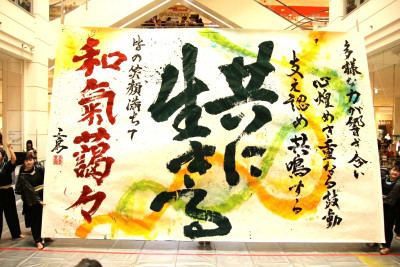 多様な力が響き合い
心煌めき重なる鼓動
支え認め共鳴する
共に
生きる
皆の笑顔満ちて
和氣藹々